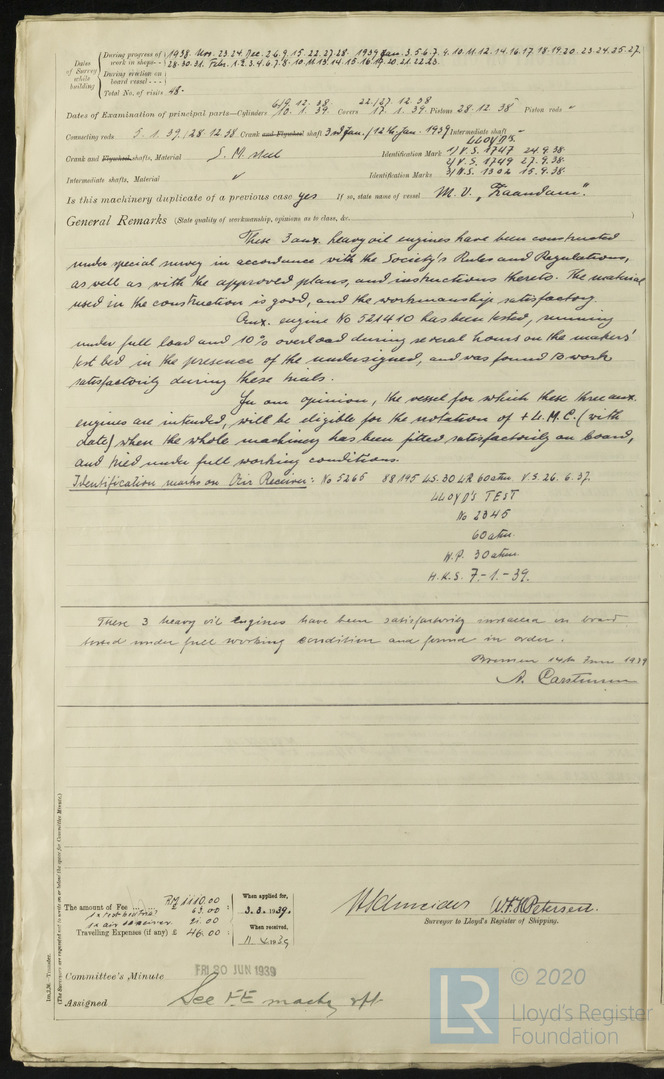 Dates of Survey while building
During progress of work in shops - - 1938. Nov. 23.24. Dec. 2.6.9.15.22.27.28. 1939 Jan. 3.5.6.7.9.10.11.12.14.16.17.18.19.20.23.24.25.27.
28.30.31. Febr. 1.2.3.4.6.7.8.10.11.13.14.15.16.17.20.21.22.23.
During erection on board vessel - - -
Total No. of visits 48.-
Dates of Examination of principal parts—Cylinders 6/9.12.38 10.1.39 Covers 22./27.12.38 17.1.39. Pistons 28.12.38 Piston rods "
Connecting rods 5.1.39./28.12.38 Crank and Flywheel shaft 3rd Jan./12th Jan. 1939 Intermediate shaft "
Crank and Flywheel shafts, Material S.M. steel Identification Mark LLOYD'S 1/ V.S. 1747 24.9.38.
2/ V.S. 1749 27.9.38.
Intermediate shafts, Material " Identification Marks 3/ W.S. 1302 15.9.38.
Is this machinery duplicate of a previous case yes If so, state name of vessel M.V. „Zaandam".
General Remarks (State quality of workmanship, opinions as to class, &c.
These 3 aux. heavy oil engines have been constructed
under special survey in accordance with the Society's Rules and Regulations,
as well as with the approved plans, and instructions thereto. The material
used in the construction is good, and the workmanship satisfactory.
Aux. engine No 521410 has been tested, running
under full load and 10% overload during several hours on the makers'
test bed in the presence of the undersigned, and was found to work
satisfactorily during these trials.
In our opinion, the vessel for which these three aux.
engines are intended, will be eligible for the notation of + L.M.C. (with
date) when the whole machinery has been fitted satisfactorily on board,
and tried under full working conditions.
Identification marks on Air Receiver: No 5265 88195 LS.30 LR 60atm. V.S. 26.6.37.
LLOYD'S TEST
No 2345
60 atm.
W.P. 30 atm.
H.K.S. 7.-1.-39.
These 3 heavy oil engines have been satisfactorily installed on board
tested under full working condition and found in order.
Bremen 14th June 1939
A. Carstensen
The amount of Fee ... RM 1110.00
1x test bed trial 63.00
1x air receiver 21.00
Travelling Expenses (if any) £ 46.00
When applied for, 3.3.1939.
When received, 11.4.1939
H Schneider W.F.H. Petersen.
Surveyor to Lloyd's Register of Shipping.
Committee's Minute FRI 30 JUN 1939
Assigned See F.E. machy rpt
Im.1,M.—Transfer.
(The Surveyors are requested not to write on or below the space for Committee Minute.)
© 2020
LR
Lloyd's Register
Foundation